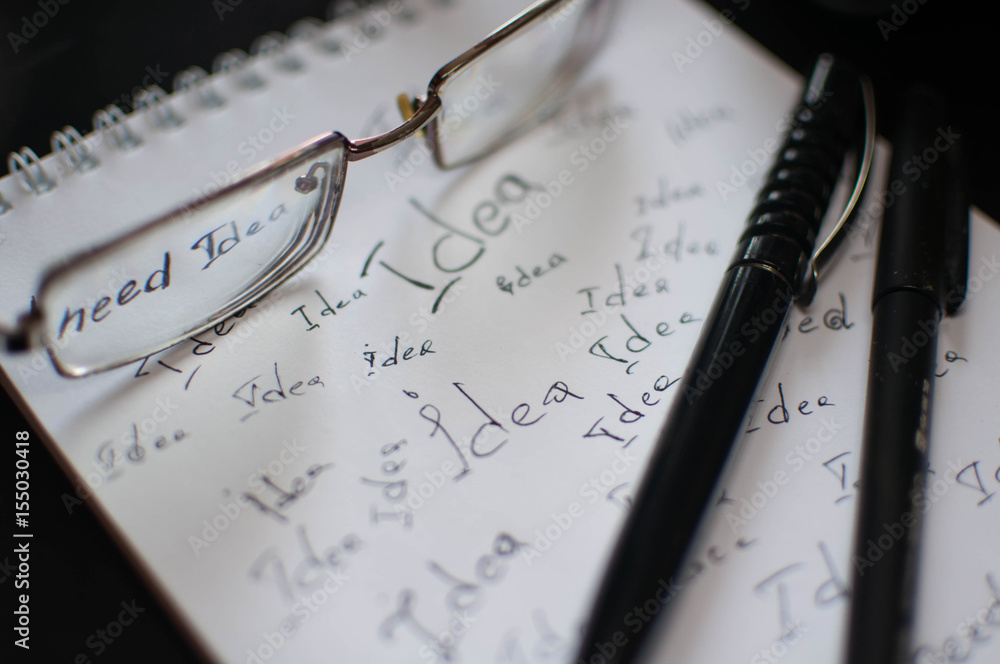 need Idea
Idea
Idea
Idea
Idea
Idea
Idea
Idea
Idea
Idea
idea
Idea
Idea
Idea
Idea
Idea
Idea
Idea
Idea
Idea
Idea
Idea
Adobe Stock | #155030418